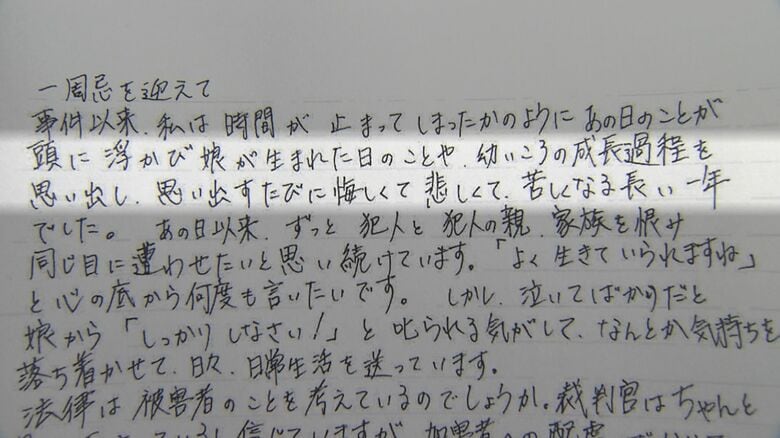 一周忌を迎えて
事件以来、私は時間が止まってしまったかのようにあの日のことが
頭に浮かび娘が生まれた日のことや、幼いころの成長過程を
思い出し、思い出すたびに悔しくて悲しくて、苦しくなる長い一年
でした。 あの日以来、ずっと犯人と犯人の親、家族を恨み
同じ目に遭わせたいと思い続けています。「よく生きていられますね」
と心の底から何度も言いたいです。 しかし、泣いてばかりだと
娘から「しっかりしなさい!」と叱られる気がして、なんとか気持ちを
落ち着かせて、日々、日常生活を送っています。
法律は被害者のことを考えているのでしょうか。裁判官はちゃんと
信じていますが 加害者への配慮